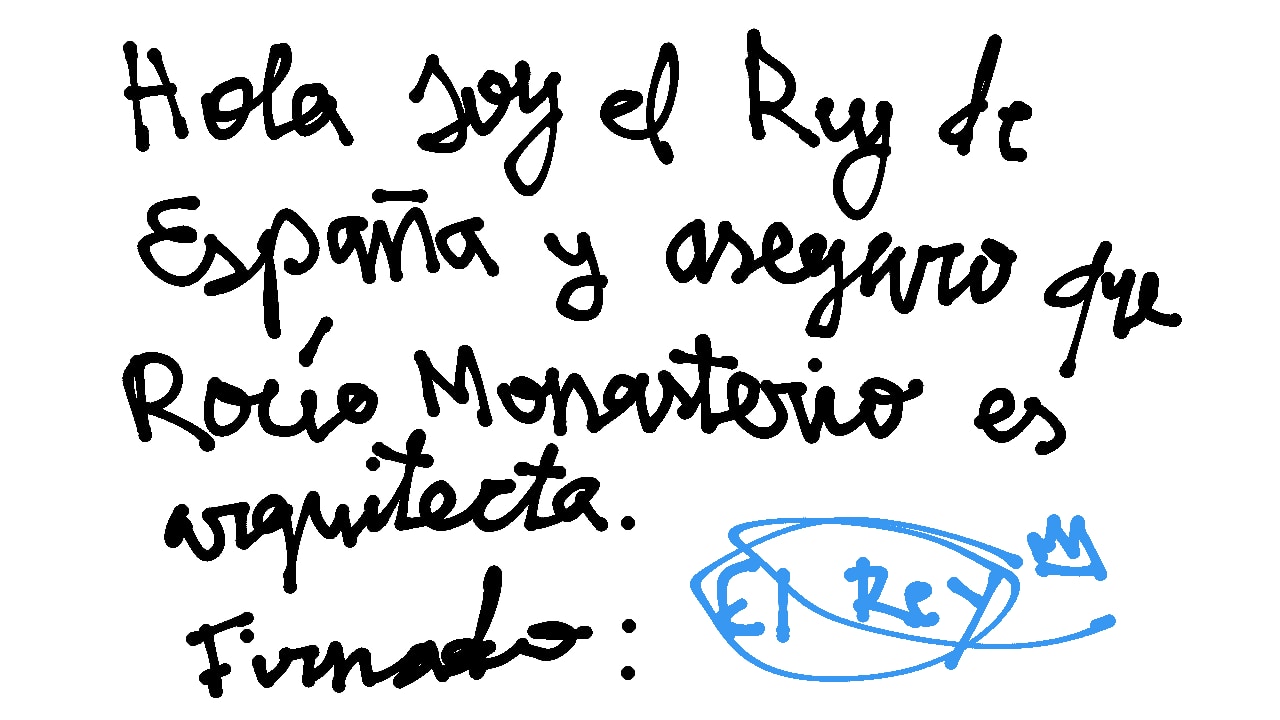 Hola soy el Rey de
España y aseguro que
Rocío Monasterio es
arquitecta.
Firmado: El Rey